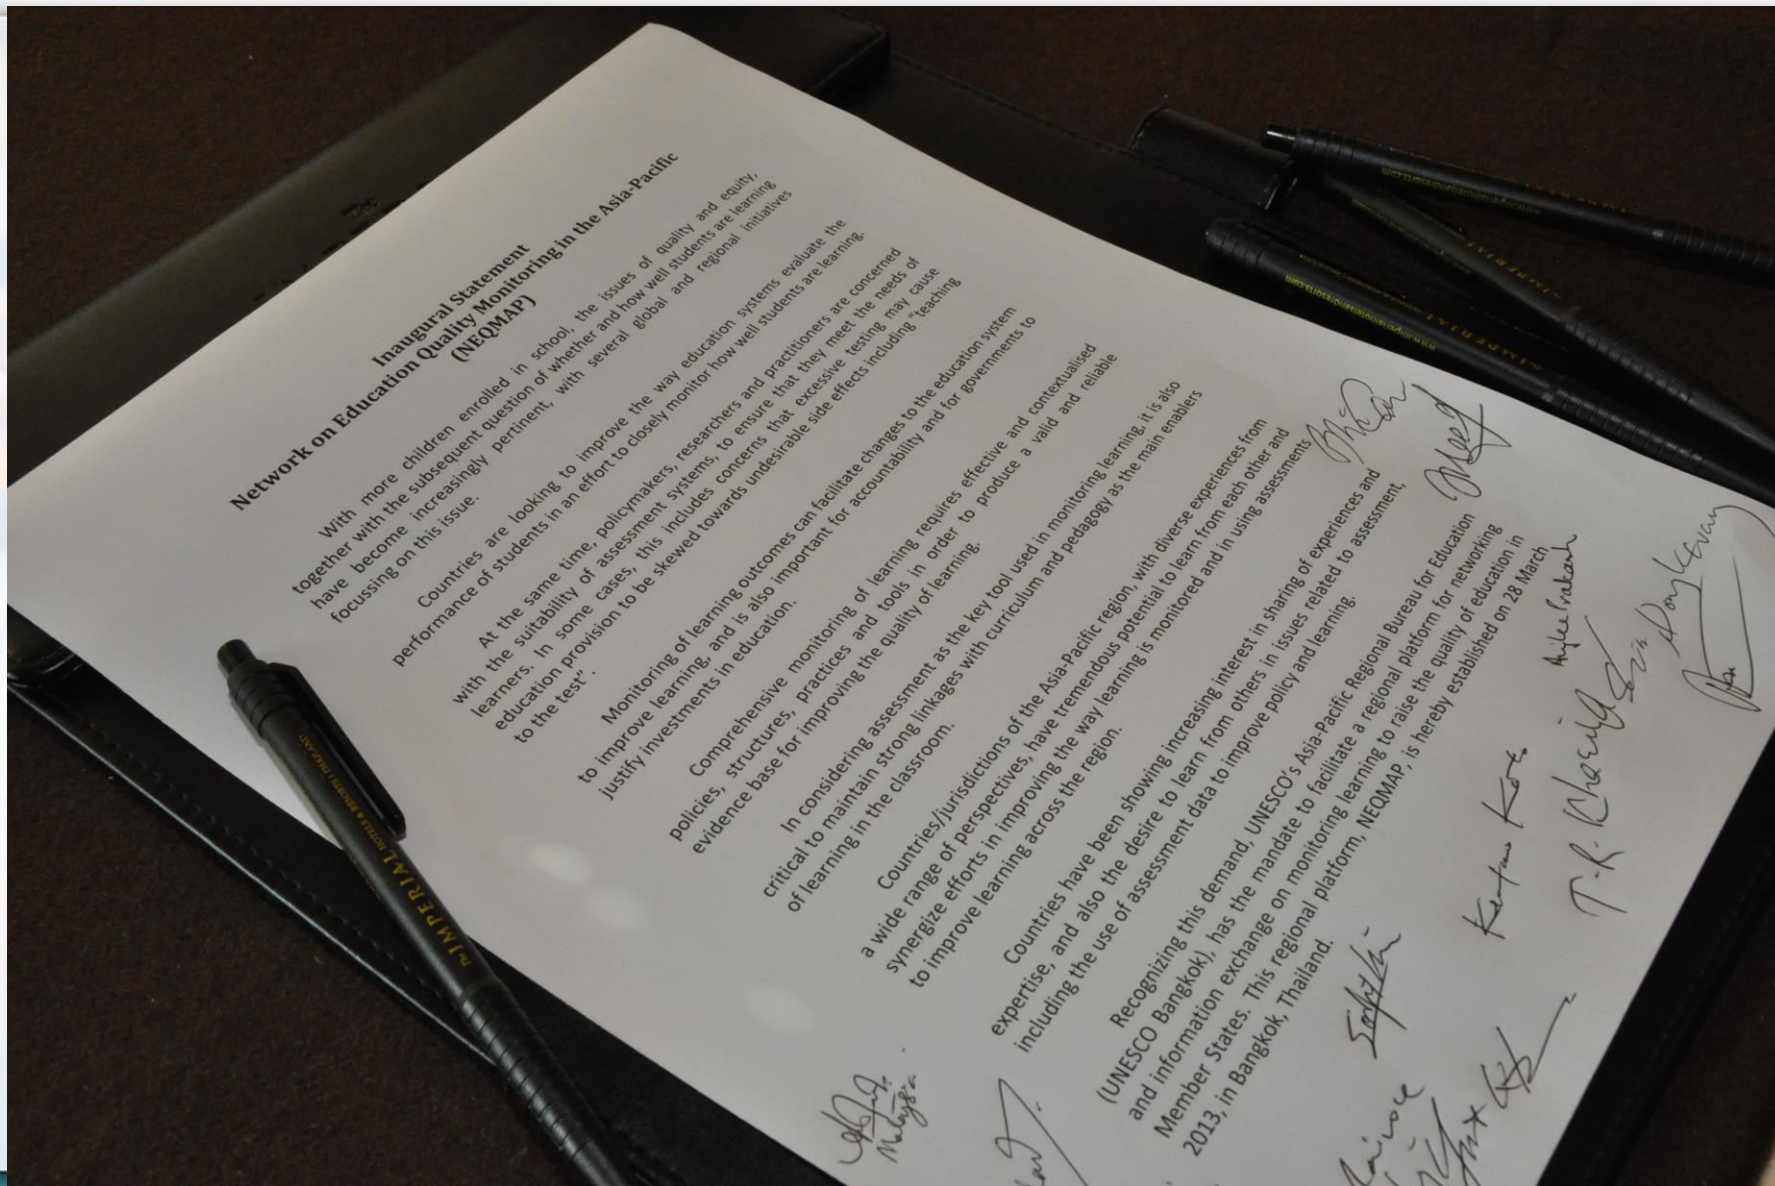 Inaugural Statement
Network on Education Quality Monitoring in the Asia-Pacific
(NEQMAP)
With more children enrolled in school, the issues of quality and equity,
together with the subsequent question of whether and how well students are learning
have become increasingly pertinent, with several global and regional initiatives
focussing on this issue.
Countries are looking to improve the way education systems evaluate the
performance of students in an effort to closely monitor how well students are learning.
At the same time, policymakers, researchers and practitioners are concerned
with the suitability of assessment systems, to ensure that they meet the needs of
learners. In some cases, this includes concerns that excessive testing may cause
education provision to be skewed towards undesirable side effects including "teaching
to the test".
Monitoring of learning outcomes can facilitate changes to the education system
to improve learning, and is also important for accountability and for governments to
justify investments in education.
Comprehensive monitoring of learning requires effective and contextualised
policies, structures, practices and tools in order to produce a valid and reliable
evidence base for improving the quality of learning.
In considering assessment as the key tool used in monitoring learning, it is also
critical to maintain strong linkages with curriculum and pedagogy as the main enablers
of learning in the classroom.
Countries/jurisdictions of the Asia-Pacific region, with diverse experiences from
a wide range of perspectives, have tremendous potential to learn from each other and
synergize efforts in improving the way learning is monitored and in using assessments
to improve learning across the region.
Countries have been showing increasing interest in sharing of experiences and
expertise, and also the desire to learn from others in issues related to assessment,
including the use of assessment data to improve policy and learning.
Recognizing this demand, UNESCO's Asia-Pacific Regional Bureau for Education
(UNESCO Bangkok), has the mandate to facilitate a regional platform for networking
and information exchange on monitoring learning to raise the quality of education in
Member States. This regional platform, NEQMAP, is hereby established on 28 March
2013, in Bangkok, Thailand.
Malaysia
Anjlee Prakash
T.R.
The IMPERIAL HOTELS & RESORTS | THAILAND
www.imperialhotelsandresorts.com
The IMPERIAL
www.imperialhotelsandresorts.com
The IMPERIAL